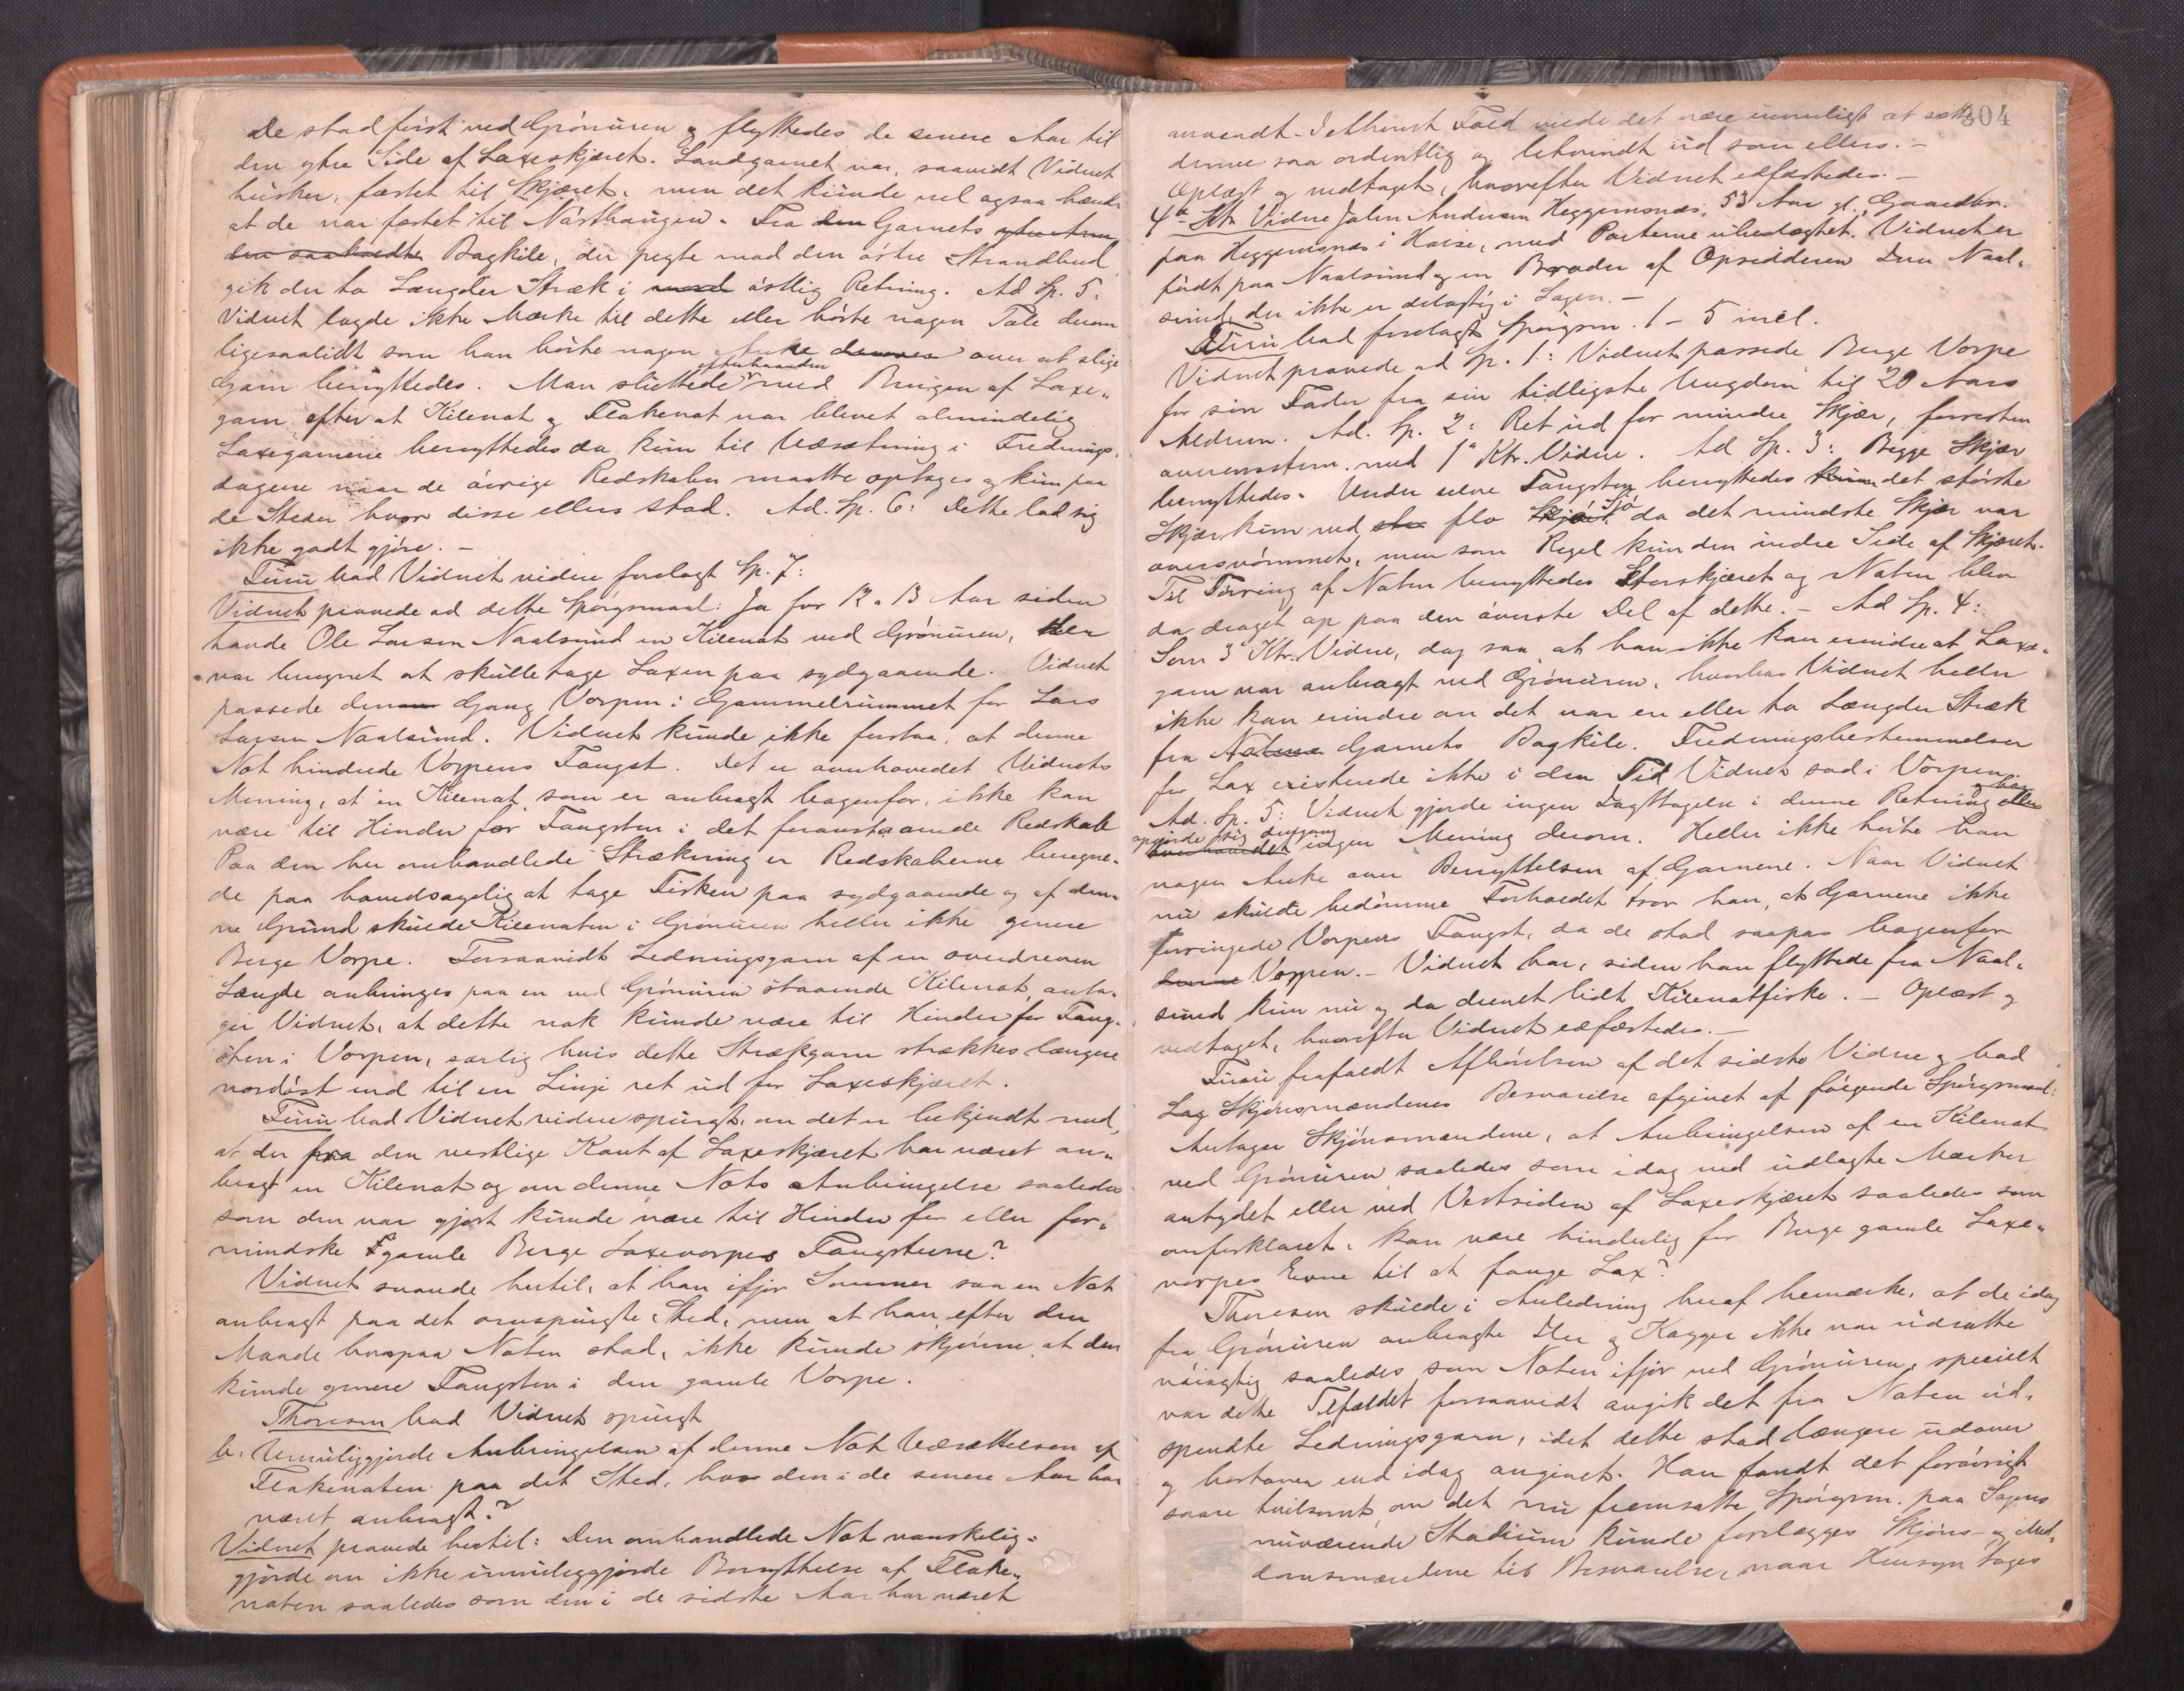 De stod först ved Grónuren og flyttedes de senere Aar til
den ytre Side af Laxeskjæret. Landgarnet var, saavidt Vidnet
husker, fæstet til Skjæret, men det kunde vel ogsaa hænde
at de var fæstet til Nasthaugen. Fra den Garnets
den saakaldte Bagkile, der pegte mod den östre Strandbred
gik der to Længder Stræk i nord östlig Retning. Ad Sp. 5:
Vidnet lagde ikke Mærke til dette eller hörte nogen Tale derom
ligesaalidt som han hörte nogen Anke derover over at slige
efterhaanden
Garn benyttedes. Man sluttede med Brugen af Laxe„
garn efter at Kilenot og Flakenot var blevet almindelig
Laxegarnene benyttedes da kun til Udsætning i Frednings„
dagene naar de övrige Redskaber maatte optages og kun paa
de Steder hvor disse ellers stod. Ad. Sp. 6: Dette lod sig
ikke godt gjöre. –
Tuin bad Vidnet videre forelagt Sp. 7:
Vidnet provede ad dette Spörgsmaal: Ja for 12 a 13 Aar siden
havde Ole Larsen Naalsund en Kilenot ved Grónuren, den
var beregnet at skulle tage Laxen paa sydgaaende. Vidnet
passede denne Gang Vorpen i Gammelrummet for Lars
Larsen Naalsund. Vidnet kunde ikke forstaa, at denne
Not hindrede Vorpens Fangst. Det er overhovedet Vidnets
Mening, at en Kilenot som er anbragt bagenfor, ikke kan
være til Hinder for Fangsten i det foranstaaende Redskab
Paa den her omhandlede Strækning er Redskaberne beregne„
de paa hovedsagelig at tage Fisken paa sydgaaende og af den„
ne Grund skulde Kilenoten i Grónuren heller ikke genere
Berge Vorpe. Forsaavidt Ledningsgarn af en overdreven
Længde anbringes paa en ved Grónuren staaende Kilenot, anta„
ger Vidnet, at dette nok kunde være til Hinder for Fang„
sten i Vorpen, særlig hvis dette Strækgarn strækkes længere
nordöst end til en Linje ret ud for Laxeskjæret.
Tuin bad Vidnet videre spurgt, om det er bekjendt med,
at der fra den vestlige Kant af Laxeskjæret har været an„
bragt en Kilenot og om denne Nots Anbringelse saaledes
som den var gjort kunde være til Hinder for eller for„
mindske gamle Berge Laxevorpes Fangstevne?
Vidnet svarede hertil, at han ifjor Sommer saa en Not
anbragt paa det omspurgte Sted, men at han efter den
Maade hvorpaa Noten stod, ikke kunde skjönne, at den
kunde genere Fangsten i den gamle Vorpe.
Thoresen bad Vidnet spurgt
b: Umuliggjorde Anbringelsen af denne Not Udsættelsen af
Flakenoten paa det Sted, hvor den i de senere Aar har
været anbragt?
Vidnet provede hertil: Den omhandlede Not vanskelig=
gjorde om ikke umuliggjorde Benyttelse af Flake„
noten saaledes som den i de sidste Aar har været
304
anvendt. I ethvert Fald vilde det være umuligt at sætte
denne saa ordentlig og letvindt ud som ellers. –
Oplæst og vedtaget, hvorefter Vidnet edfæstedes. –
4de Ktr. Vidne Johan Andersen Heggemsnæs, 53 Aar gl., Gaardbr.
paa Heggemsnæs i Halse, med Parterne ubeslægtet. Vidnet er
födt paa Naalsund og en Broder af Opsidderen Iver Naal„
sund, der ikke er delagtig i Sagen. –
Tuin bad forelagt Spörgsm. 1 – 5 incl.
Vidnet provede ad Sp. 1: Vidnet passede Berge Vorpe
for sin Fader fra sin tidligste Ungdom til 20 Aars
Alderen. Ad. Sp. 2: Ret ud for mindre Skjær, forresten
overensstem. med 1ste Ktr. Vidne. Ad Sp. 3: Begge Skjær
benyttedes. Under selve Fangsten benyttedes kun det störste
Sjö
Skjær kun ved flo da det mindste Skjær var
oversvömmet, men som Regel kun den indre Side af Skjæret.
Til Törring af Noten benyttedes Storskjæret og Noten blev
da draget op paa den överste Del af dette. – Ad Sp. 4:
Som 3 Ktr. Vidne, dog saa, at han ikke kan erindre at Laxe„
garn var anbragt ved Grónuren, hvorhos Vidnet heller
ikke kan erindre om det var en eller to Længder Stræk
fra Garnets Bagkile. Fredningsbestemmelser
for Lax existerede ikke i den Tid Vidnet sad i Vorpen.
Ad. Sp. 5: Vidnet gjorde ingen Iagttagelse i denne Retning eller
opgjorde sig dengang
ingen Mening derom. Heller ikke hörte han
nogen Anke over Benyttelsen af Garnene. Naar Vidnet
nu skulde bedömme Forholdet tror han, at Garnene ikke
forringede Vorpens Fangst, da de stod saapas bagenfor
denne Vorpen. – Vidnet har, siden han flyttede fra Naal„
sund kun nu og da drevet lidt Kilenotfiske. – Oplæst og
vedtaget, hvorefter Vidnet edfæstedes. –
Tuin frafaldt Afhörelsen af det sidste Vidne og bad
Lag Skjönsmændenes Besvarelse afgivet af fölgende Spörgsmaal:
Antager Skjönsmændene, at Anbringelsen af en Kilenot
ved Grónuren saaledes som idag ved udlagte Mærker
antydet eller ved Vestsiden af Laxeskjæret saaledes som
omforklaret, kan være hinderlig for Berge gamle Laxe„
vorpes Evne til at fange Lax?
Thoresen skulde i Anledning heraf bemærke, at de idag
fra Grónuren anbragte Iler og Kagger ikke var udsatte
nöiagtig saaledes som Noten ifjor ved Grónuren, specielt
var dette Tilfældet forsaavidt angik det fra Noten ud„
spendte Ledningsgarn, idet dette stod længere udover
og bortover end idag angivet. Han fandt det forövrigt
saare tvilsomt, om det nu fremsatte Spörgsm. paa Sagens
nuværende Stadium kunde forelægges Skjöns- og Med„
domsmændene til Besvarelse, naar Hensyn tages